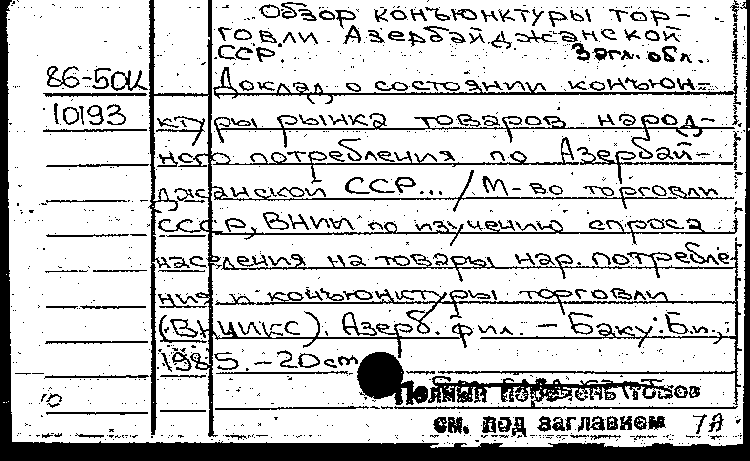 Обзор конъюнктуры тор-
говли Азербайджанской
ССР. Загл. обл.
86-50К Доклад о состоянии конъюн-
10193 ктуры рынка товаров народ-
ного потребления по Азербай-
джанской ССР... / М-во торговли
СССР, ВНИИ по изучению спроса
населения на товары нар. потребле-
ния и конъюнктуры торговли
(ВНИИКС). Азерб. фил. — Баку: Б.и.,
1985. — 20 см
Полный перечень томов
см. под заглавием 7А